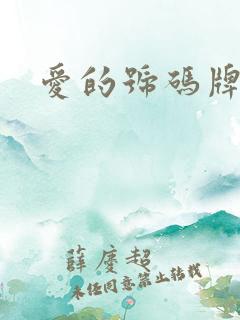 愛的號碼牌
薛慶超
未经同意禁止转载